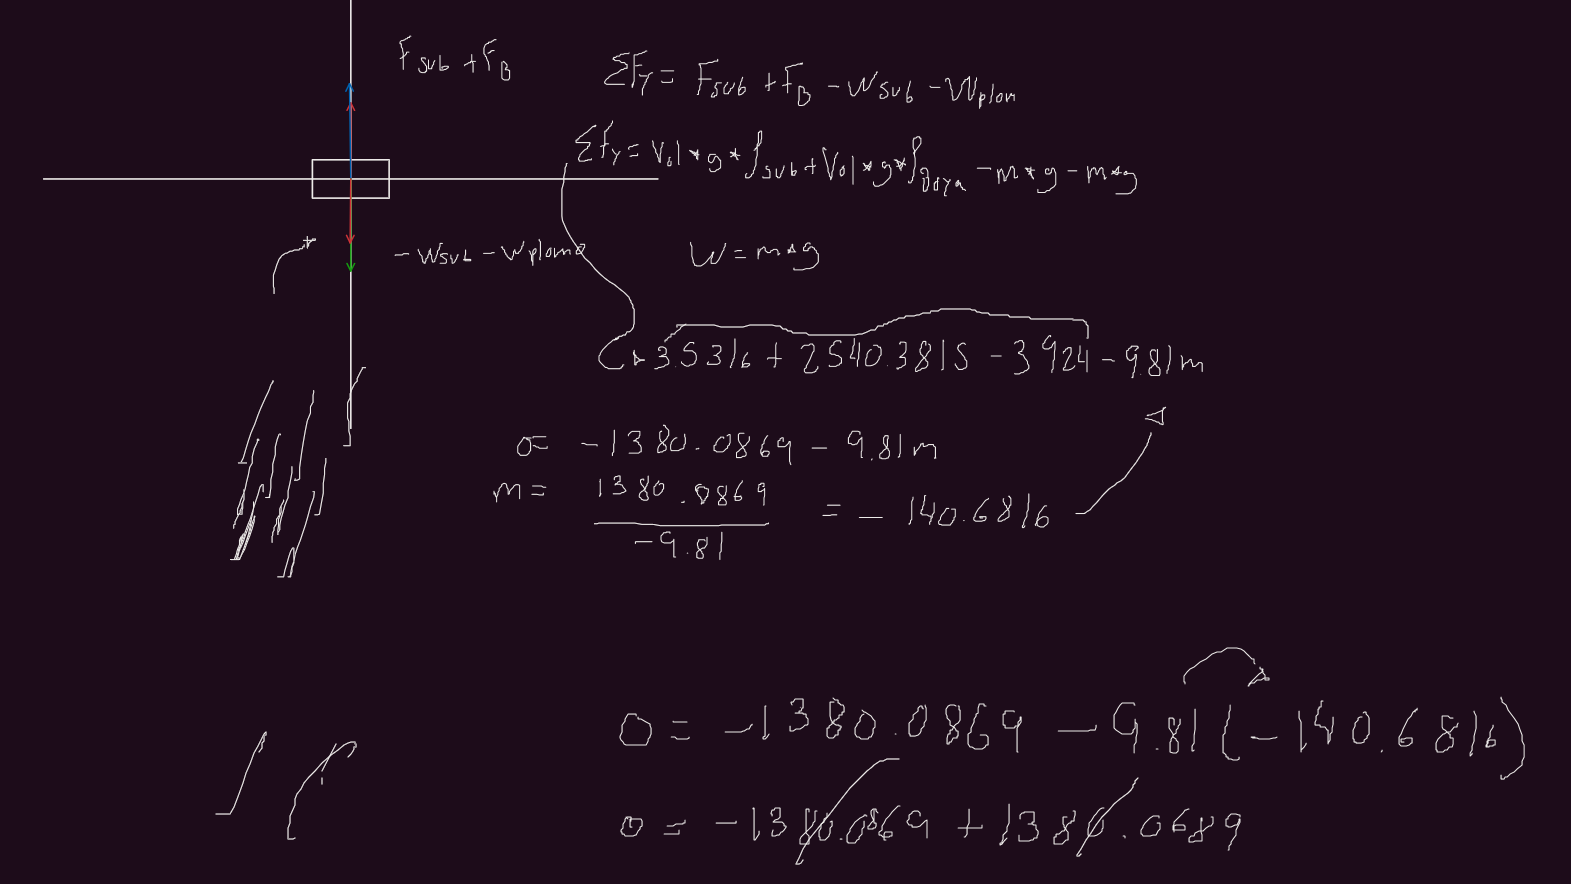 Fsub + FB
ΣFy = Fsub + FB - Wsub - Wplom
ΣFy = Vol * g * ρsub + Vol * g * ρBoya - m * g - m * g
- Wsub - Wplomo
W = m * g
3.5316 + 2540.3815 - 3924 - 9.81m
0= -1380.0869 - 9.81m
m = 1380.0869 / -9.81 = - 140.6816
0 = -1380.0869 - 9.81 (-140.6816)
0 = -1380.0869 + 1380.0689